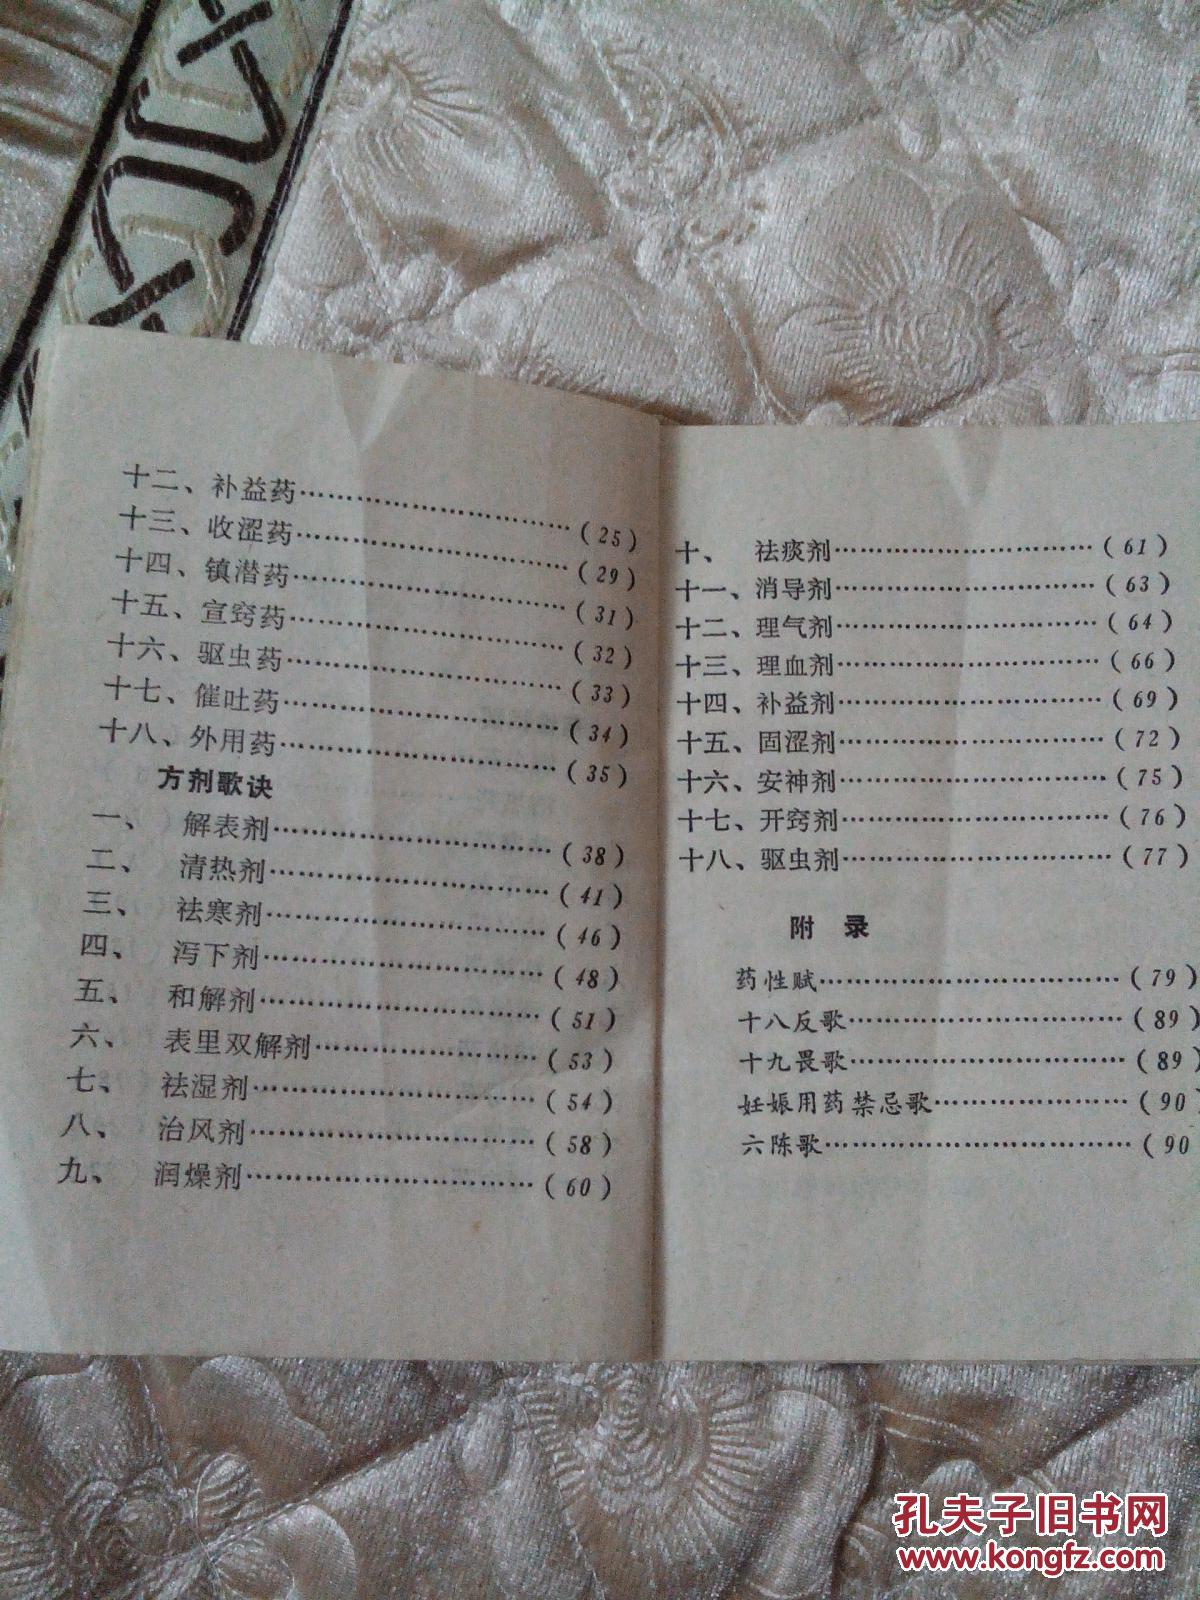 十二、补益药……………………………(25)
十三、收涩药……………………………(29)
十四、镇潜药……………………………(31)
十五、宣窍药……………………………(32)
十六、驱虫药……………………………(33)
十七、催吐药……………………………(34)
十八、外用药……………………………(35)
方剂歌诀
一、 解表剂……………………………(38)
二、 清热剂……………………………(41)
三、 祛寒剂……………………………(46)
四、 泻下剂……………………………(48)
五、 和解剂……………………………(51)
六、 表里双解剂………………………(53)
七、 祛湿剂……………………………(54)
八、 治风剂……………………………(58)
九、 润燥剂……………………………(60)
十、 祛痰剂……………………………(61)
十一、消导剂……………………………(63)
十二、理气剂……………………………(64)
十三、理血剂……………………………(66)
十四、补益剂……………………………(69)
十五、固涩剂……………………………(72)
十六、安神剂……………………………(75)
十七、开窍剂……………………………(76)
十八、驱虫剂……………………………(77)
附 录
药性赋…………………………………(79)
十八反歌………………………………(89)
十九畏歌………………………………(89)
妊娠用药禁忌歌………………………(90)
六陈歌…………………………………(90
孔夫子旧书网
www.kongfz.com